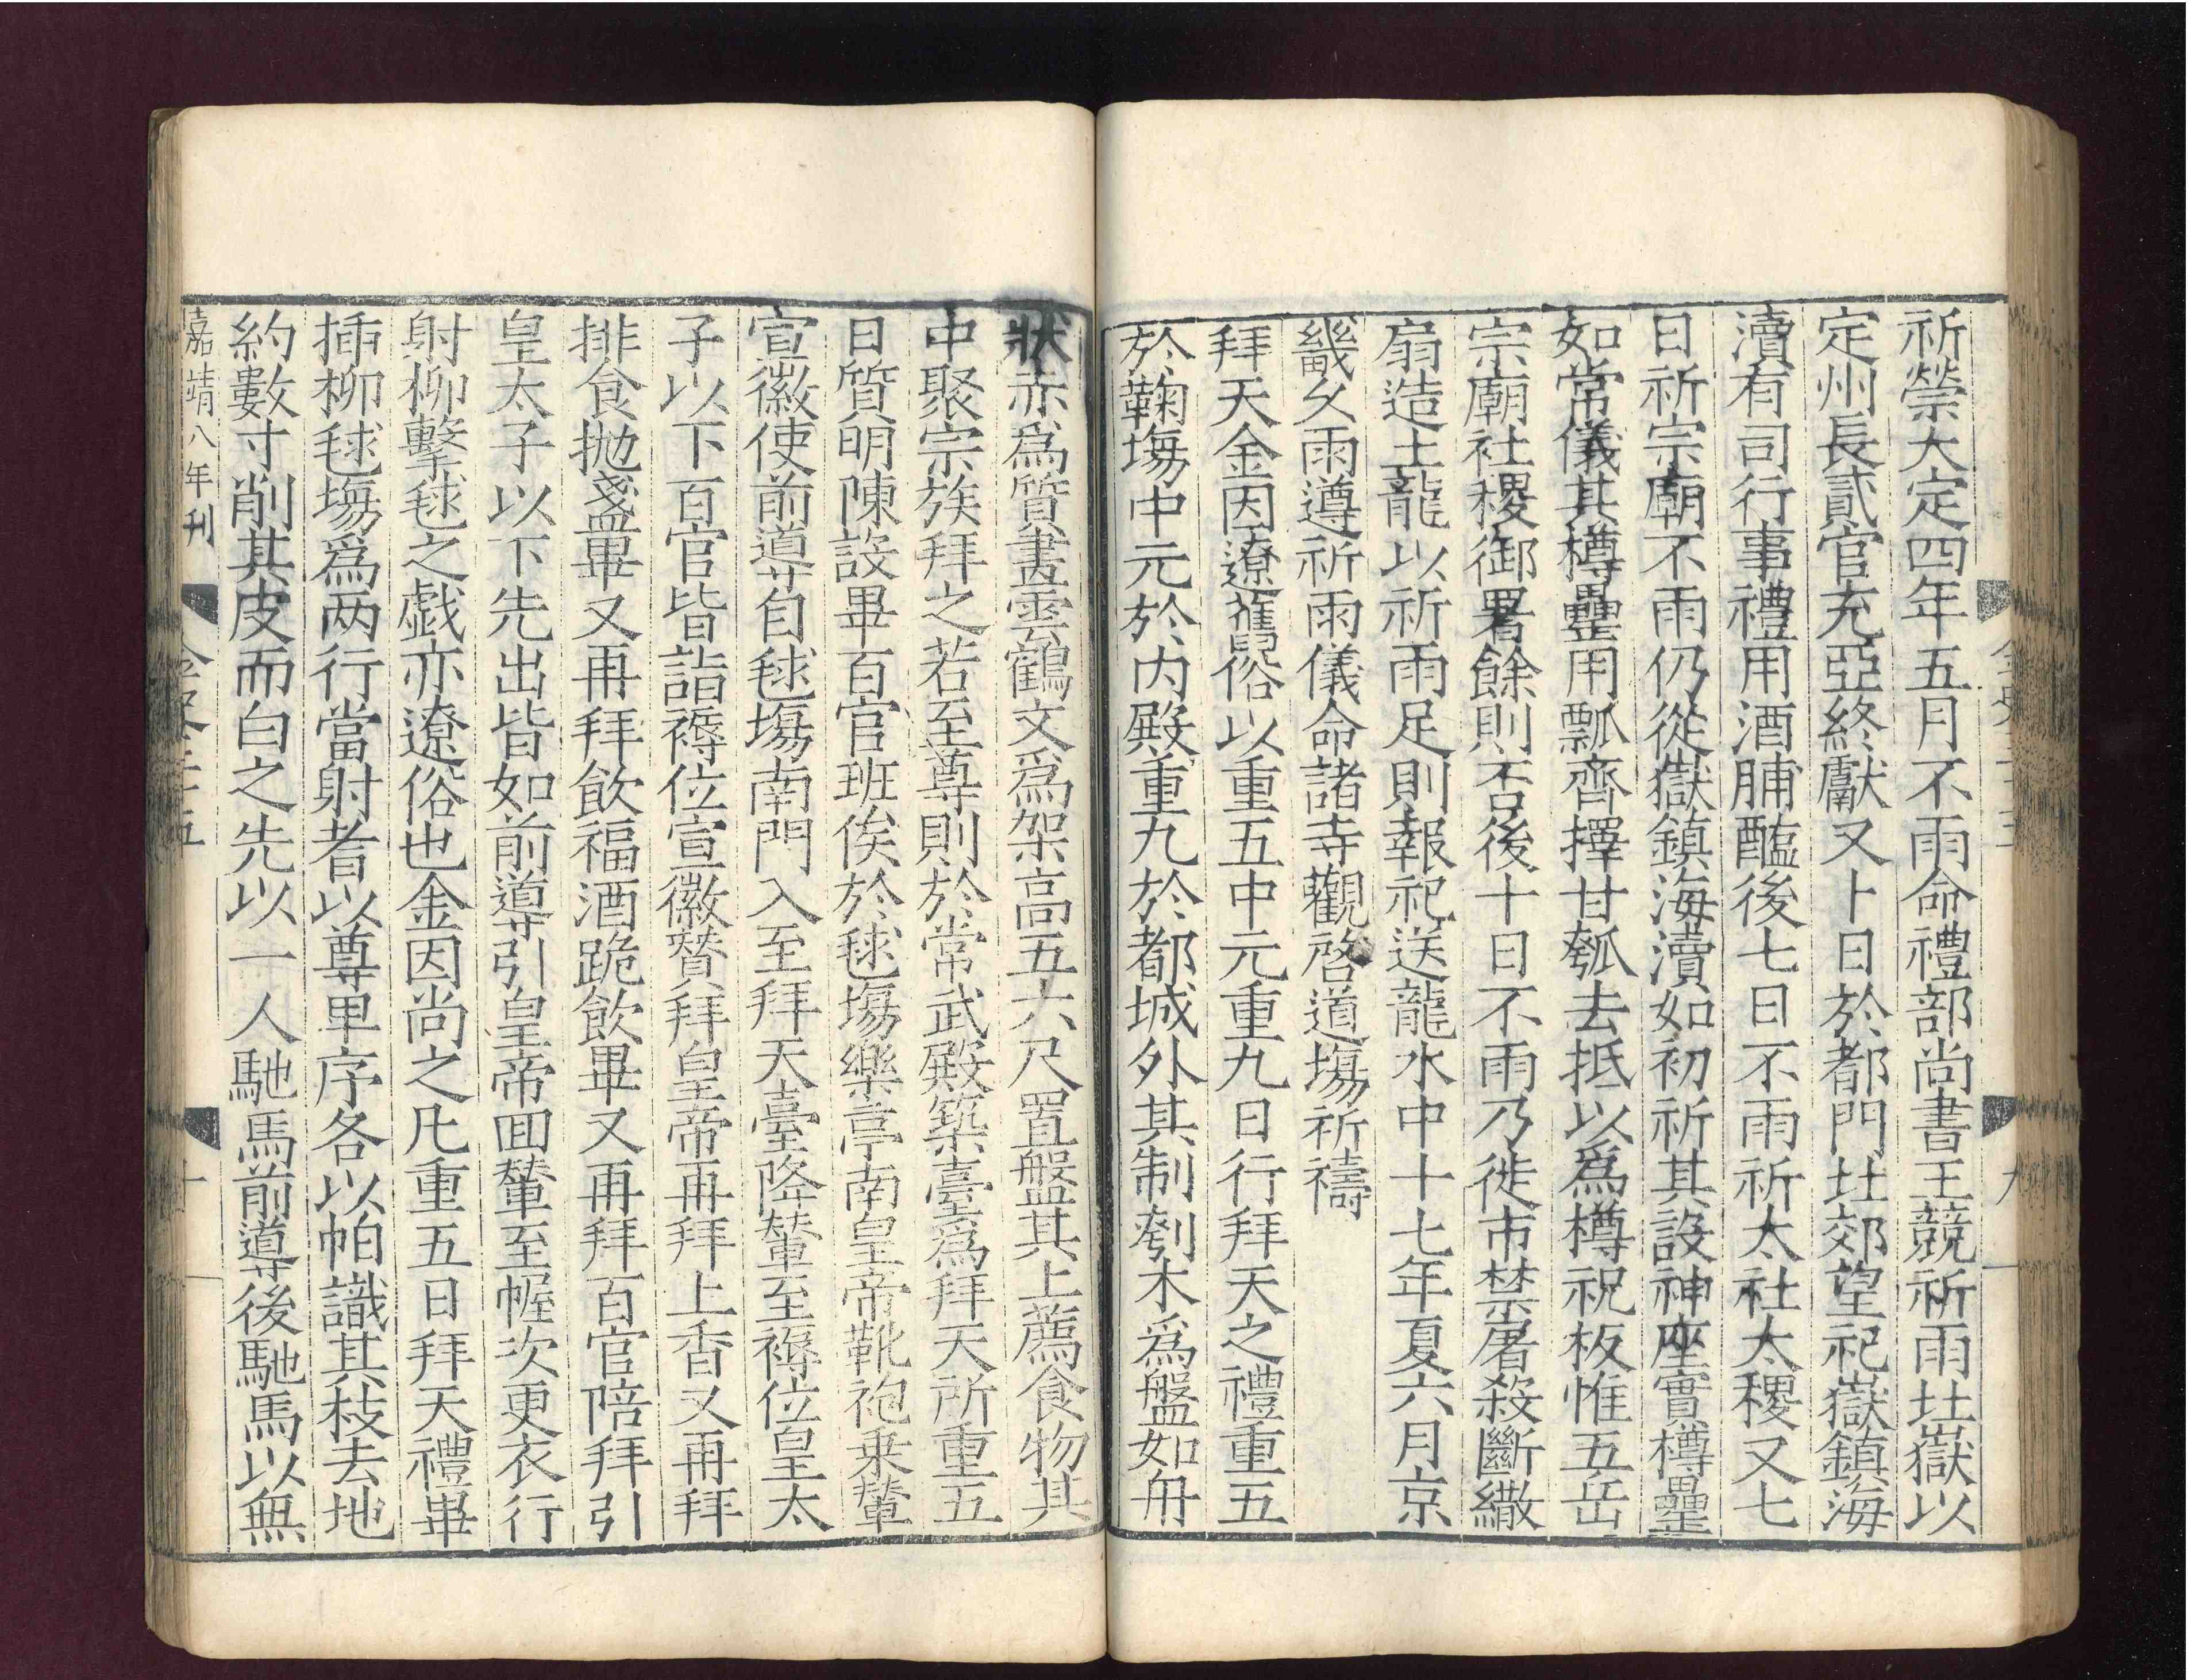 祈禜大定四年五月不雨命禮部尚書王競祈雨北嶽以
定州長貳官充亞終獻又卜日於都門北郊望祀嶽鎮海
瀆有司行事禮用酒脯醢後七日不雨祈太社太稷又七
日祈宗廟不雨仍從嶽鎮海瀆如初祈其設神座實樽罍
如常儀其樽罍用瓢齊擇甘瓠去柢以爲樽祝板惟五岳
宗廟社稷御署餘則否後十日不雨乃徙市禁屠殺斷繖
扇造土龍以祈雨足則報祀送龍水中十七年夏六月京
畿久雨遵祈雨儀命諸寺觀啓道塲祈禱
拜天金因遼舊俗以重五中元重九日行拜天之禮重五
於鞠塲中元於内殿重九於都城外其制刳木爲盤如舟
狀赤爲質畫雲鶴文爲架高五六尺置盤其上薦食物其
中聚宗族拜之若至尊則於常武殿築臺爲拜天所重五
日質明陳設畢百官班俟於毬塲樂亭南皇帝靴袍乗輦
宣徽使前導自毬塲南門入至拜天臺降輦至褥位皇太
子以下百官皆詣褥位宣徽贊拜皇帝再拜上香又再拜
排食抛盞畢又再拜飲福酒跪飲畢又再拜百官陪拜引
皇太子以下先出皆如前導引皇帝回輦至幄次更衣行
射柳擊毬之戯亦遼俗也金因尚之凡重五日拜天禮畢
插柳毬塲爲两行當射者以尊卑序各以帕識其枝去地
約數寸削其皮而白之先以一人馳馬前導後馳馬以無
嘉靖八年刊
金史三十五
十